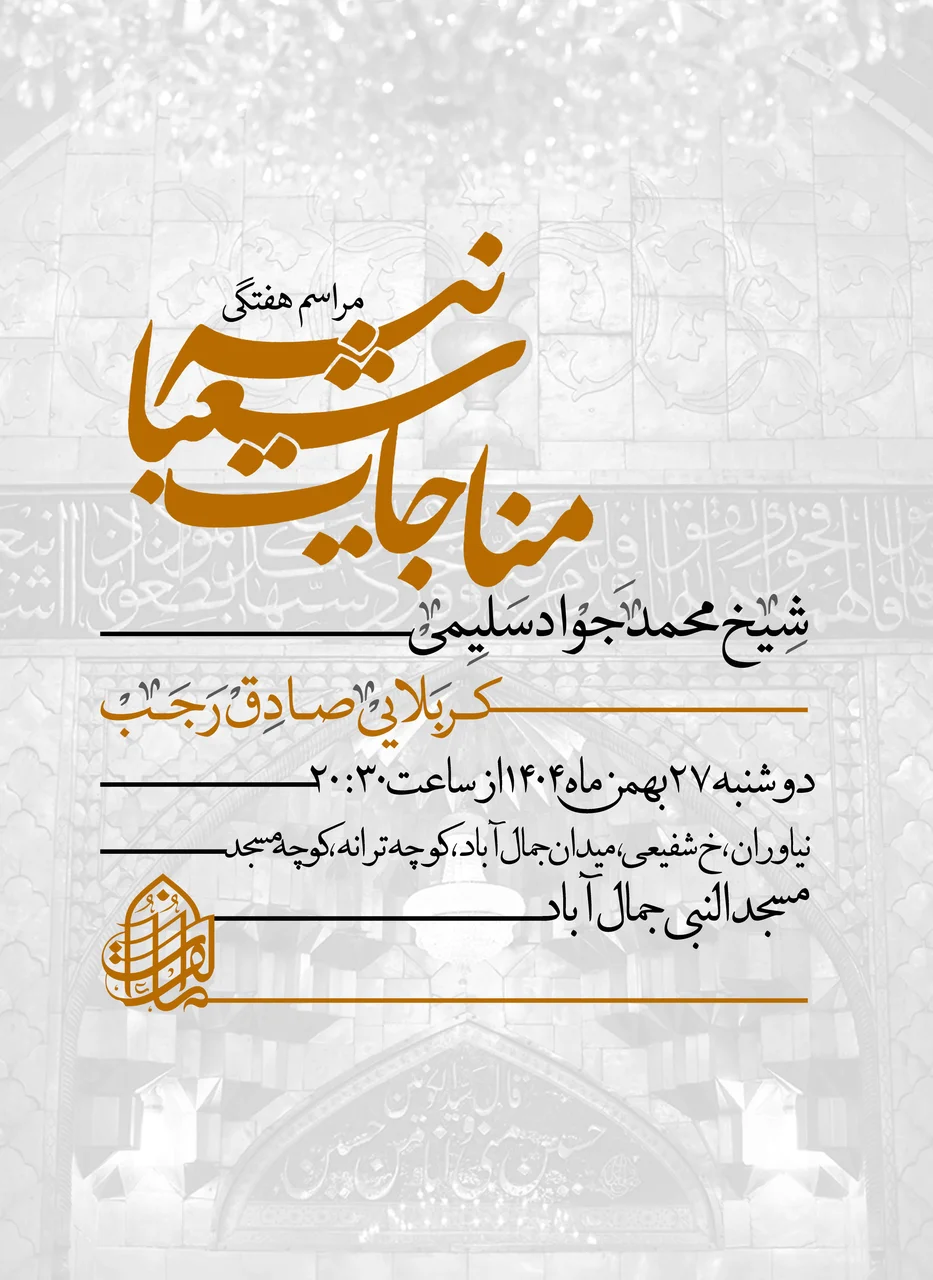 مراسم هفتگی
مناجات شعبانیه
شیخ محمدجواد سلیمی
کربلایی صادق رجب
دوشنبه ۲۷ بهمن ماه ۱۴۰۴ از ساعت ۲۰:۳۰
نیاوران، خ شفیعی، میدان جمال آباد، کوچه ترانه، کوچه مسجد
مسجد النبی جمال آباد
قال رسول الله
حسین منی و انا من حسین